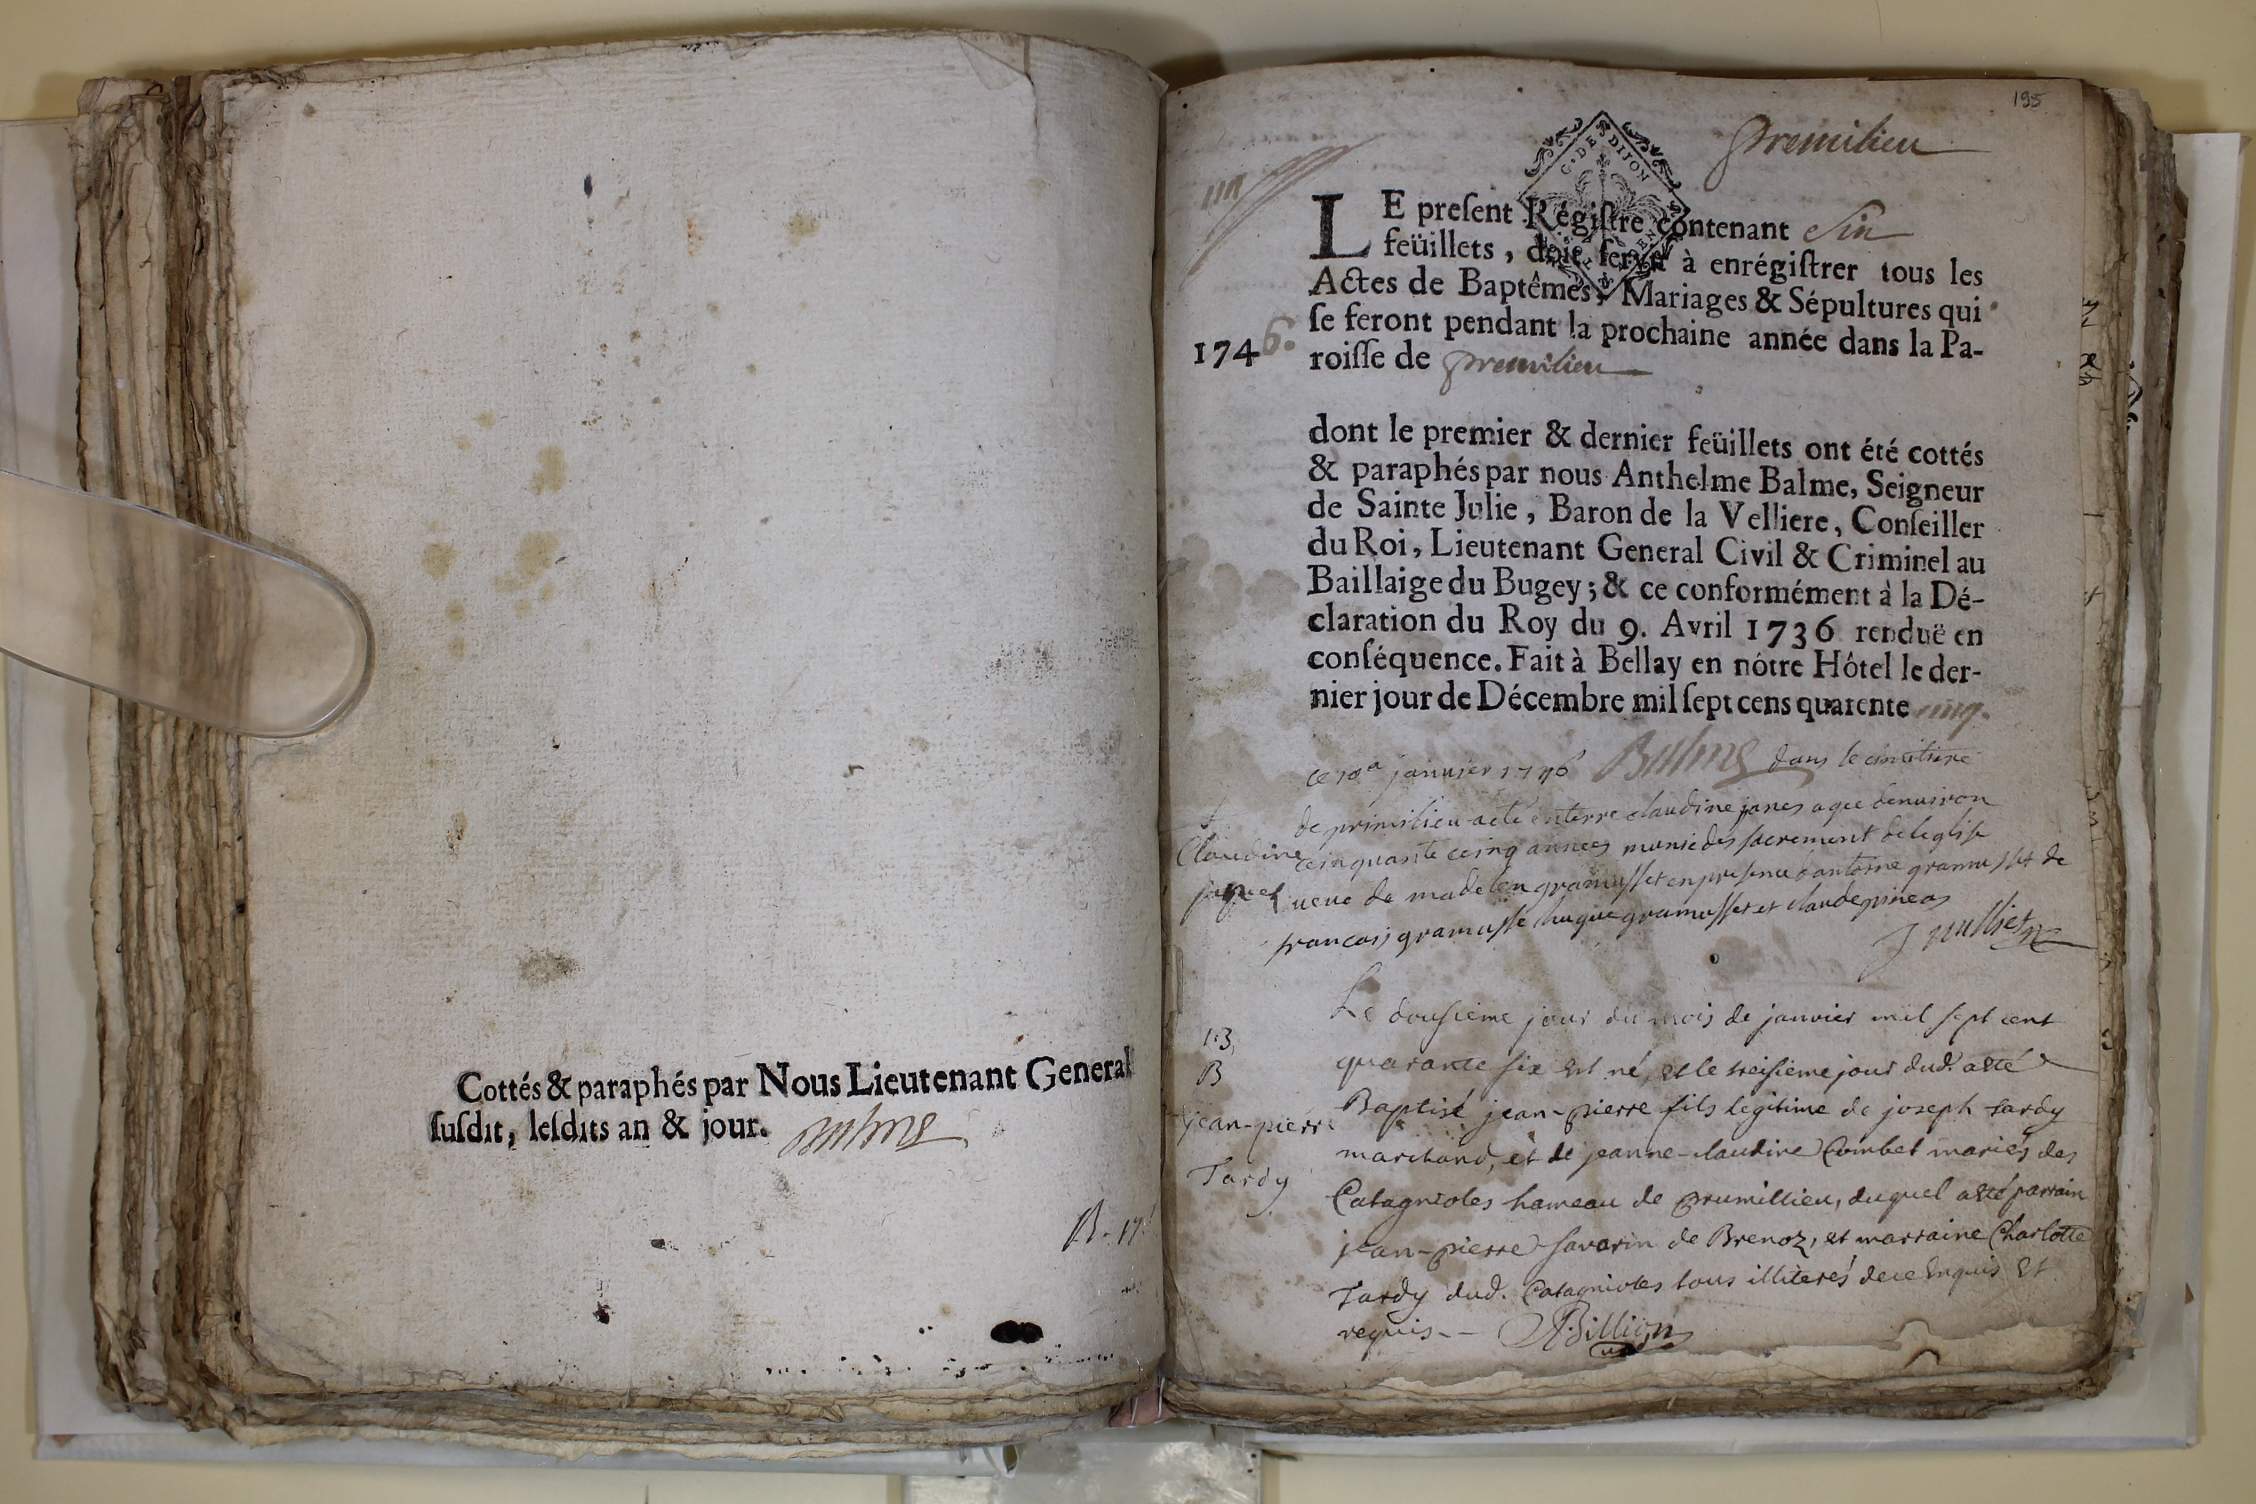 Cottés & paraphés par Nous Lieutenant General
ſuſdit, leſdits an & jour. Balme
B. 17
195
premilieu
G. DE DIJON
LE preſent Régiſtre contenant Six
feüillets, doit ſervir à enrégiſtrer tous les
Actes de Baptêmes, Mariages & Sépultures qui
ſe feront pendant la prochaine année dans la Pa-
1746.
roiſſe de premilieu
dont le premier & dernier feüillets ont été cottés
& paraphés par nous Anthelme Balme, Seigneur
de Sainte Julie, Baron de la Velliere, Conſeiller
du Roi, Lieutenant General Civil & Criminel au
Baillaige du Bugey; & ce conformément à la Dé-
claration du Roy du 9. Avril 1736 renduë en
conſéquence. Fait à Bellay en nôtre Hôtel le der-
nier jour de Décembre mil ſept cens quarente cinq.
Balme
ce 10a janvier 1746 dans le cimitiere
de primilieu a eté enterre claudine janes agee denuiron
Claudine
cinquante cinq annees munie des sacrement de leglise
veue de gramusset en presence dantoine gramusset de
francois gramusse hugue gramusset et claude pineas
Jeulliet
Le dousieme jour du mois de janvier mil sept cent
quarante six est né, et le treisieme jour dud. a eté
B
jean-pierre
Tardy
Baptisé jean-pierre fils legitime de joseph tardy
marchand, et de jeanne-claudine Combet mariés des
Catagnoles hameau de prumillieu, duquel a eté parrain
jean-pierre savarin de Brenoz, et marraine Charlotte
Tardy dud. Catagnioles tous illiterés de ce enquis et
requis -- Billion